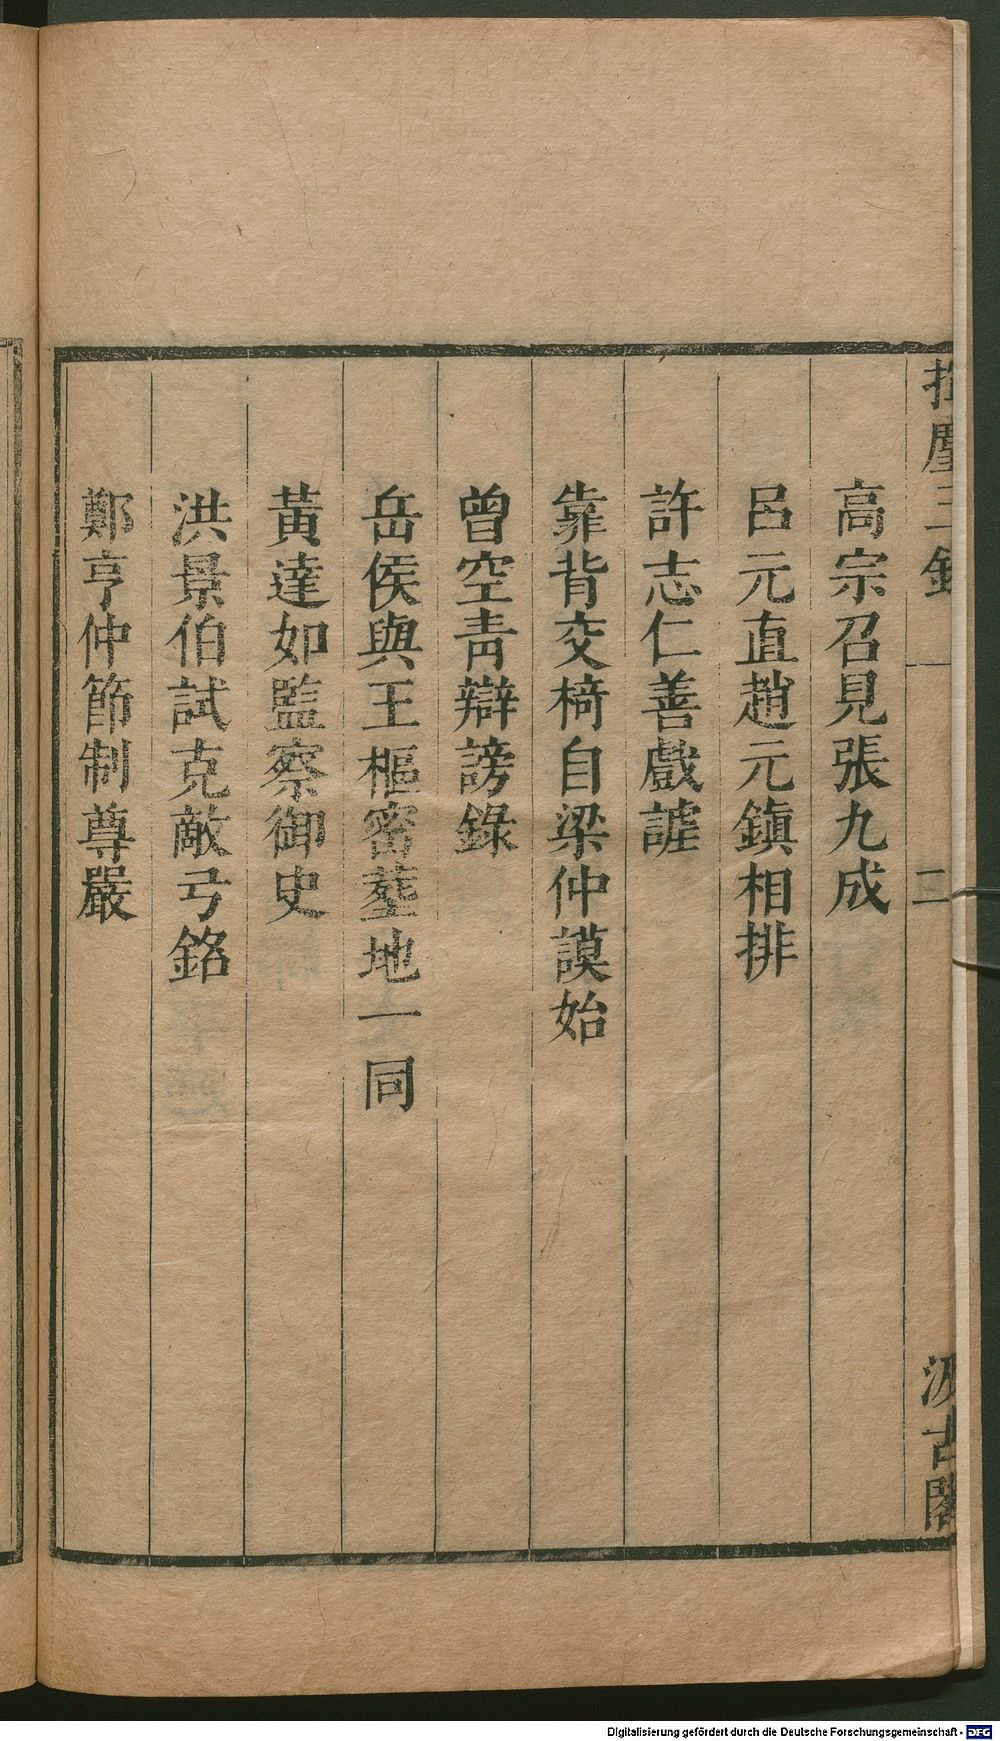 揮麈三錄 二 汲古閣
高宗召見張九成
呂元直趙元鎮相排
許志仁善戲謔
靠背交椅自梁仲謨始
曾空靑辯謗錄
岳侯與王樞密塟地一同
黃達如監察御史
洪景伯試克敵弓銘
鄭亨仲節制尊嚴
Digitalisierung gefördert durch die Deutsche Forschungsgemeinschaft - DFG